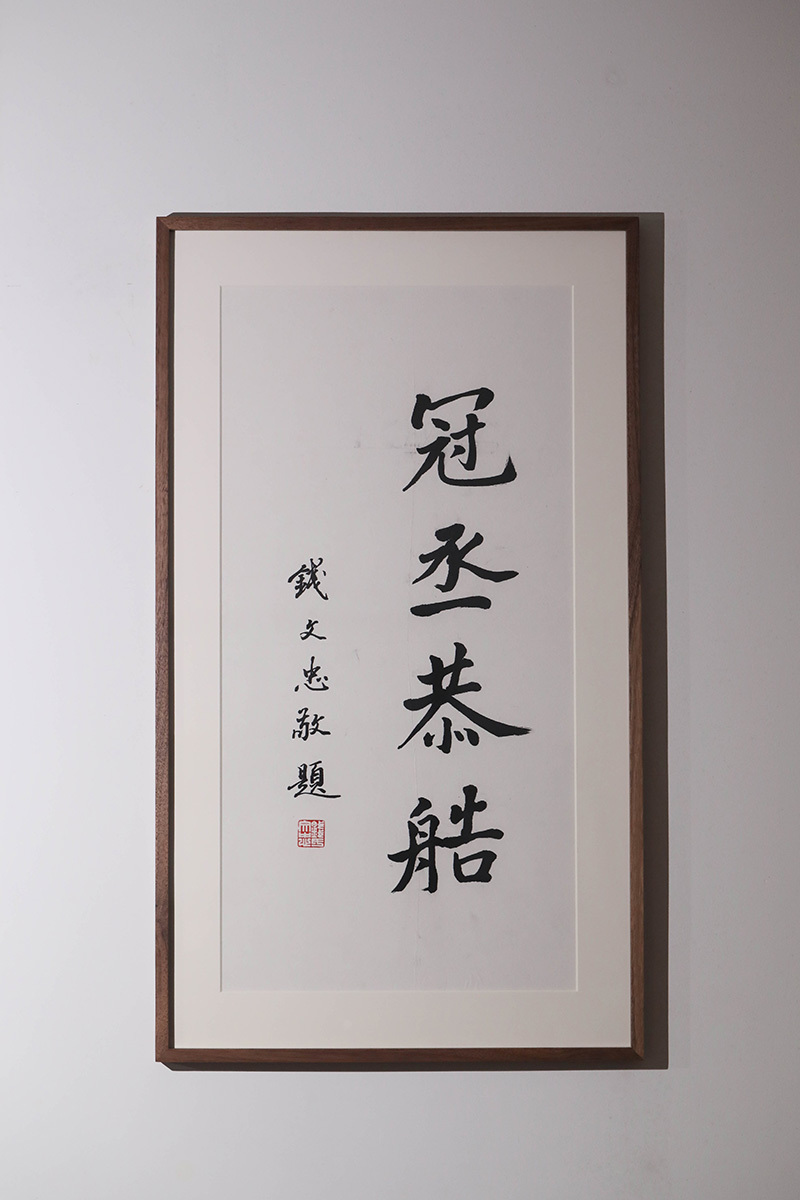 冠丞恭艁
錢文忠敬題